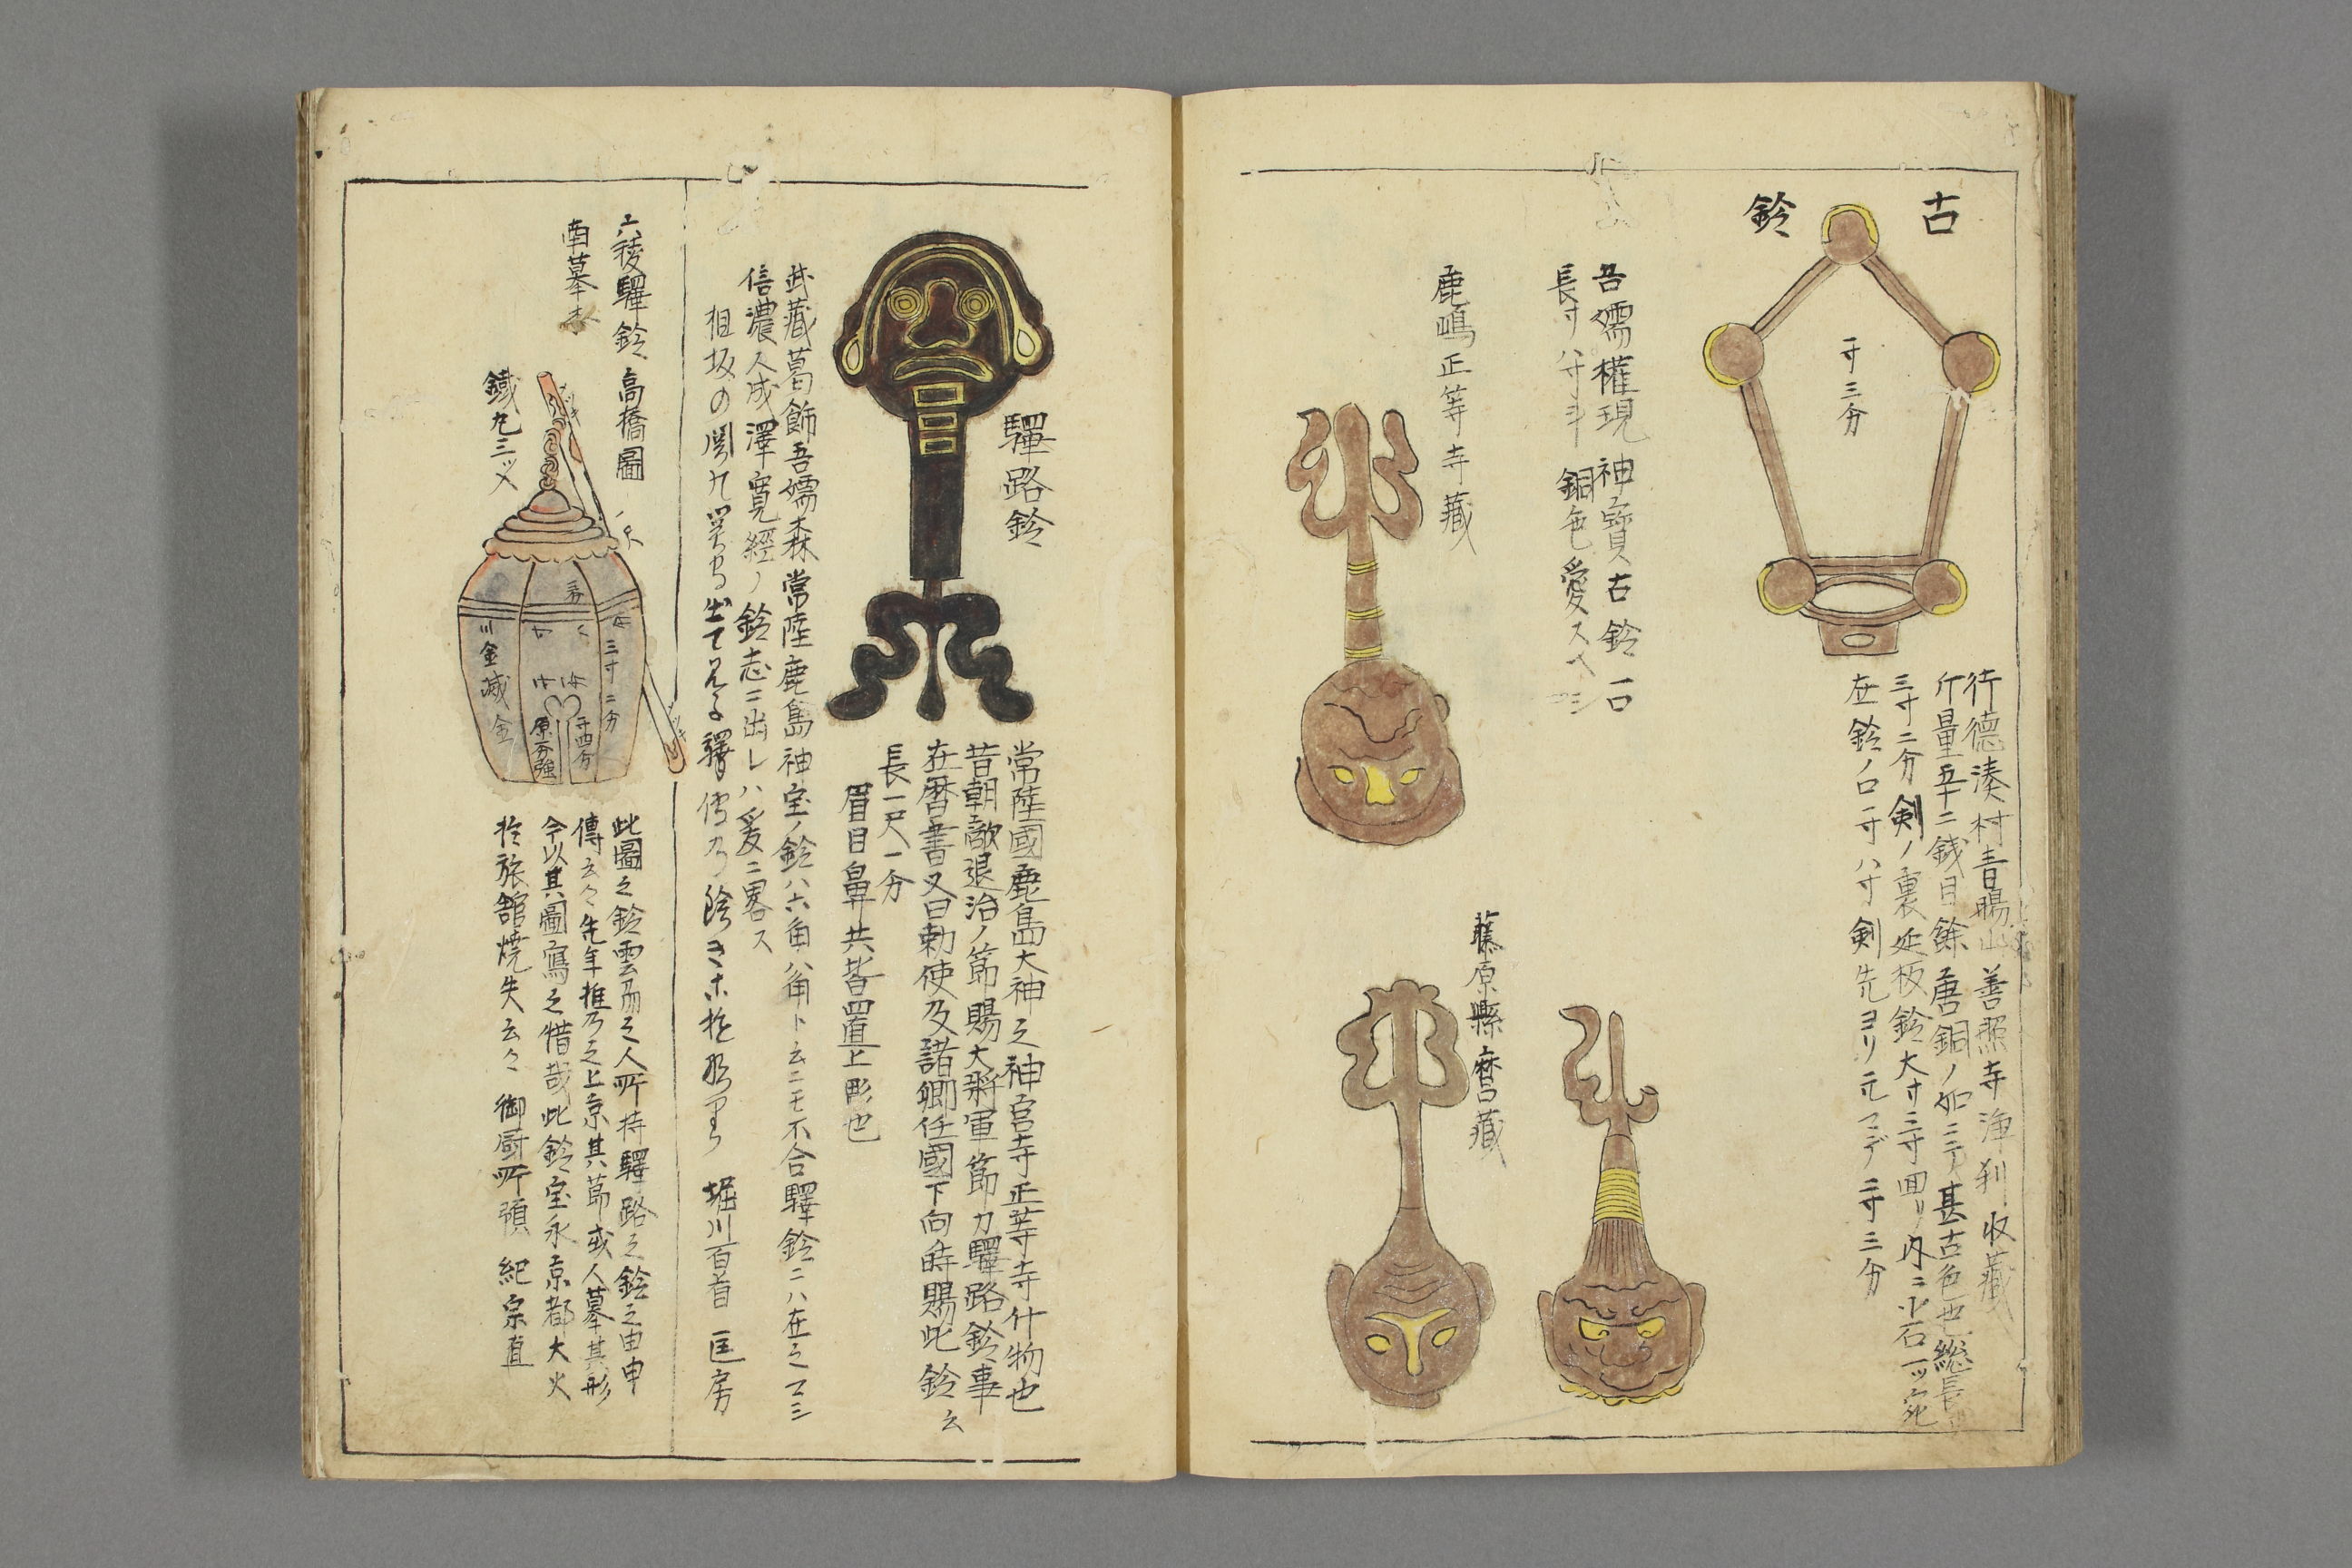 古鈴
一寸三分
行徳湊村青暘山善照寺浄刹収藏
斤量五十二錢目餘唐銅ノ如ニテ甚古色也総長
三寸二分剣ノ裏延板鈴大寸三寸囬リ内ニ小石一ツ宛
在鈴ノ口一寸八寸剣先ヨリ元マデ二寸三分
吾嬬權現神寶古鈴一口
長寸八寸斗銅色愛スヘシ
鹿嶋正等寺藏
藤原縣麿藏
驛路鈴
常陸國鹿島大神之神宮寺正等寺什物也
昔朝敵退治ノ節賜大將軍節刀驛路鈴事
在暦書又曰勅使及諸卿任國下向時賜此鈴云
長一尺一分
眉目鼻共皆置上彫也
武藏葛飾吾嬬森常陸鹿島神宝ノ鈴ハ六角八角ト云ニモ不合驛鈴ニハ在之マシ
信濃人成澤寛經ノ鈴志ニ出レハ爰ニ畧ス
堀川百首 匡房
六稜驛鈴 高橋圖
南摹本
鐵丸三ツ入
三寸二分
金滅金
此圖之鈴雲州之人所持驛路之鈴之由申
傳云々先年推乃之上京其節或人摹其形
今以其圖寫之惜哉此鈴宝永京都大火
於旅舘焼失云々 御厨所預 紀宗直